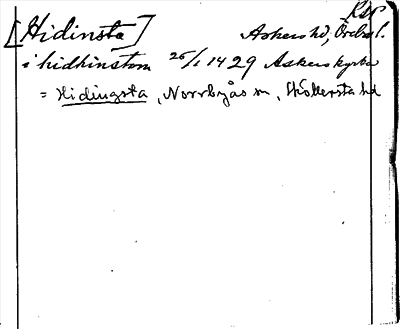 RSP
[Hidinsta] Askers hd, Örebro l.
i hidhinstom 26/1 1429 Askers kyrka
= Hidingsta, Norrbyås sn, Sköllersta hd